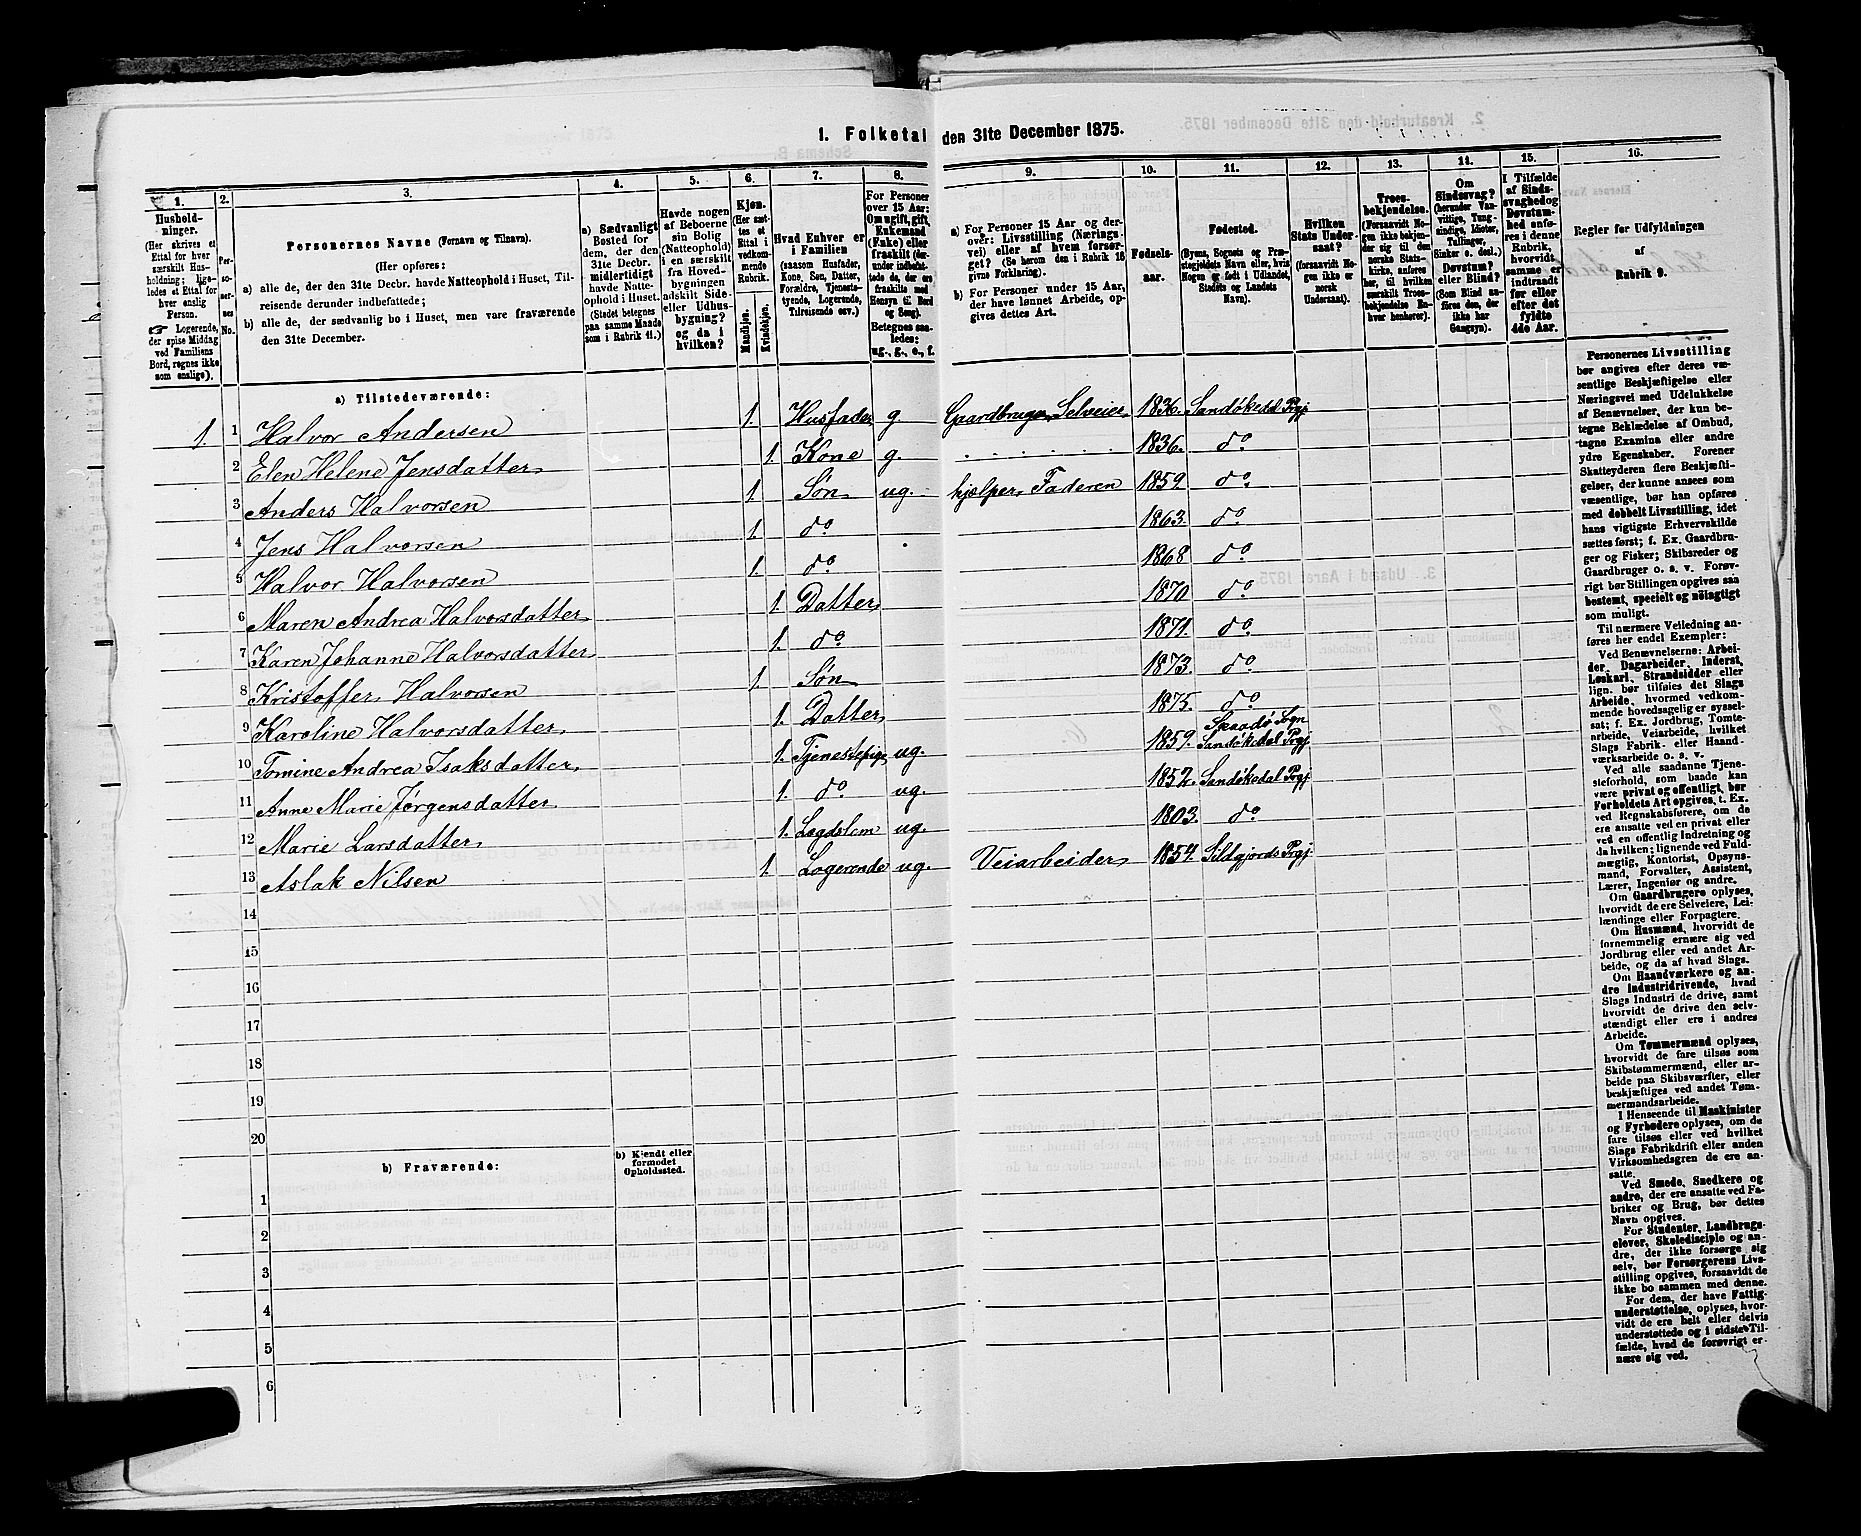 1. Folketal den 31te December 1875.
1. 2. 3. 4. 5. 6. 7. 8. 9. 10. 11. 12. 13. 14. 15. 16.
Hushold-
ninger.
(Her skrives et
Ettal for hver
særskilt Hus-
holdning; lige-
ledes et Ettal for
hver enslig
Person.
☞ Logerende,
der spise Middag
ved Familiens
Bord, regnes ikke
som enslige).
Per-
so-
ner-
nes
No.
Personernes Navne (Fornavn og Tilnavn).
(Her opføres:
a) alle de, der den 31te Decbr. havde Natteophold i Huset, Til-
reisende derunder indbefattede;
b) alle de, der sædvanlig bo i Huset, men vare fraværende
den 31te December.
a) Sædvanligt
Bosted for
dem, der den
31te Decbr.
midlertidigt
havde Natte-
ophold i Huset.
(Stedet betegnes
paa samme Maade
som i Rubrik 11.)
Havde nogen
af Beboerne
sin Bolig
(Natteophold)
i en særskilt
fra Hoved-
bygningen
adskilt Side-
eller Udhus-
bygning?
og da i
hvilken?
Kjøn.
(Her sæt-
tes et
Ettal i
vedkom-
mende
Rubrik.
Mandkjøn.
Kvindekjøn.
Hvad Enhver er
i Familien
(saasom Husfader,
Kone, Søn, Datter,
Forældre, Tjeneste-
tyende, Logerende,
Tilreisende osv.)
For Personer
over 15 Aar:
Om ugift, gift,
Enkemand
(Enke) eller
fraskilt (der-
under indbefat-
tede de, der ere
fraskilte med
Hensyn til Bord
og Seng).
Betegnes saa-
ledes:
ug., g., e., f.
a) For Personer 15 Aar og der-
over: Livsstilling (Nærings-
vei) eller af hvem forsør-
get? (Se herom den i Rubrik 16
givne Forklaring).
b) For Personer under 15 Aar,
der have lønnet Arbeide, op-
gives dettes Art.
Fødsels-
aar.
Fødested.
(Byens, Sognets og Præ-
stegjeldets Navn eller, hvis
Nogen er født i Udlandet,
Stedets og Landets
Navn).
Hvilken
Stats Under-
saat?
(forsaavidt No-
gen ikke er
norsk
Undersaat).
Troes-
bekjendelse.
(Forsaavidt No-
gen ikke bekjen-
der sig til den
norske Stats-
kirke, anføres
her, til hvilken
særskilt Troes-
bekjendelse En-
hver henhører).
Om
Sindssvag?
(herunder Van-
vittige, Tung-
sindige, Idioter,
Tullinger,
Sinker o. desl.).
Døvstum?
eller Blind?
(Som Blind an-
føres den, der
ikke har
Gangsyn).
I Tilfælde
af Sinds-
svaghed og
Døvstum-
hed anfø-
res i denne
Rubrik,
hvorvidt
samme er
indtraadt
før eller
efter det
fyldte
4de Aar.
Regler for Udfyldningen
af
Rubrik 9.
a) Tilstedeværende:
1. 1 Halvor Andersen 1. Husfader g. Gaardbruger, Selveier 1836. Sandøkedal Prgj
2 Elen Helene Jensdatter 1. Kone g. 1836. do
3 Anders Halvorsen 1. Søn ug. hjælper Faderen 1859 do
4 Jens Halvorsen 1. do 1863. do
5 Halvor Halvorsen 1. do 1868 do
6 Maren Andrea Halvorsdatter 1. Datter 1870 do
7 Karen Johanne Halvorsdatter 1. do 1871. do
8 Kristoffer Halvorsen 1. Søn 1873. do
9 Karoline Halvorsdatter 1. Datter 1875. do
Skaadø Sogn
10 Tomine Andrea Isaksdatter 1. Tjenestepige ug. 1859. Sandøkedal Prgj
11 Anne Marie Jørgensdatter 1. do ug. 1852. Sandøkedal Prgj
12 Marie Larsdatter 1. Lægdslem ug. 1803. do
13 Aslak Nilsen 1. Logerende ug. Veiarbeider 1854. Sildgjords Prgj
14
15
16
17
18
19
20
b) Fraværende:
b) Kjendt eller
formodet
Opholdssted.
1
2
3
4
5
6
Personernes Livsstilling
bør angives efter deres væ-
sentlige Beskjæftigelse eller
Næringsvei med Udelukkelse
af Benævnelser, der kun be-
tegne Beklædelse af Ombud,
tagne Examina eller andre
ydre Egenskaber. Forener
Skatteyderen flere Beskjæfti-
gelser, der kunne ansees som
væsentlige, bør han opføres
med dobbelt Livsstilling, idet
hans vigtigste Erhvervskilde
sættes først; f. Ex. Gaardbru-
ger og Fisker; Skibsreder og
Gaardbruger o. s. v. Forøv-
rigt bør Stillingen opgives saa
bestemt, specielt og nøiagtigt
som muligt.
Til nærmere Veiledning an-
føres her endel Exempler:
Ved Benævnelserne: Arbei-
der, Dagarbeider, Inderst,
Løskarl, Strandsidder eller
lign. bør tilføies det Slags
Arbeide, hvormed vedkom-
mende hovedsagelig er syssel-
sat; f. Ex. Jordbrug, Tomte-
arbeide, Veiarbeide, hvilket
Slags Fabrik- eller Haand-
værksarbeide o. s. v.
Ved alle saadanne Tjene-
steforhold, som baade kan
være privat og offentligt, bør
Forholdets Art opgives, t. Ex.
ved Regnskabsførere, om de
ere ansatte ved en privat eller
ved en offentlig Indretning og
da hvilken; lignende ved Fuld-
mægtig, Kontorist, Opsyns-
mand, Forvalter, Assistent,
Lærer, Ingeniør og andre.
Om Gaardbrugere oplyses,
hvorvidt de ere Selveiere, Lei-
lændinge eller Forpagtere.
Om Husmænd, hvorvidt de
fornemmelig ernære sig ved
Jordbrug eller ved andet Ar-
beide, og da af hvad Slags.
Om Haandværkere og an-
dre Industridrivende, hvad
Slags Industri de drive, samt
hvorvidt de drive den selv-
stændigt eller ere i andres
Arbeide.
Om Tømmermænd oplyses,
hvorvidt de fare tilsøs som
Skibstømmermænd, eller ar-
beide paa Skibsværfter, eller
beskjæftiges ved andet Tøm-
mermandsarbeide.
I Henseende til Maskinister
og Fyrbødere oplyses, om de
fare tilsøs eller ved hvilket
Slags Fabrikdrift eller anden
Virksomhedsgren de ere an-
satte.
Ved Smede, Snedkere og
andre, der ere ansatte ved Fa-
briker og Brug, bør dettes
Navn opgives.
For Studenter, Landbrugs-
elever, Skoledisciple og an-
dre, der ikke forsørge sig
selv, bør Forsørgerens Livs-
stilling opgives, forsaavidt de
ikke bo sammen med denne.
For dem, der have Fattig-
understøttelse, oplyses, hvor-
vidt de ere helt eller delvis
understøttede og i sidste Til-
fælde, hvad de forøvrigt er-
nære sig ved.